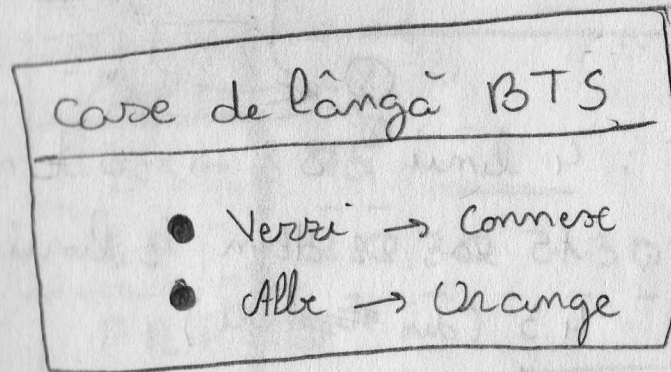 case de lângă BTS
• Verzi → Connex
• Albe → Orange